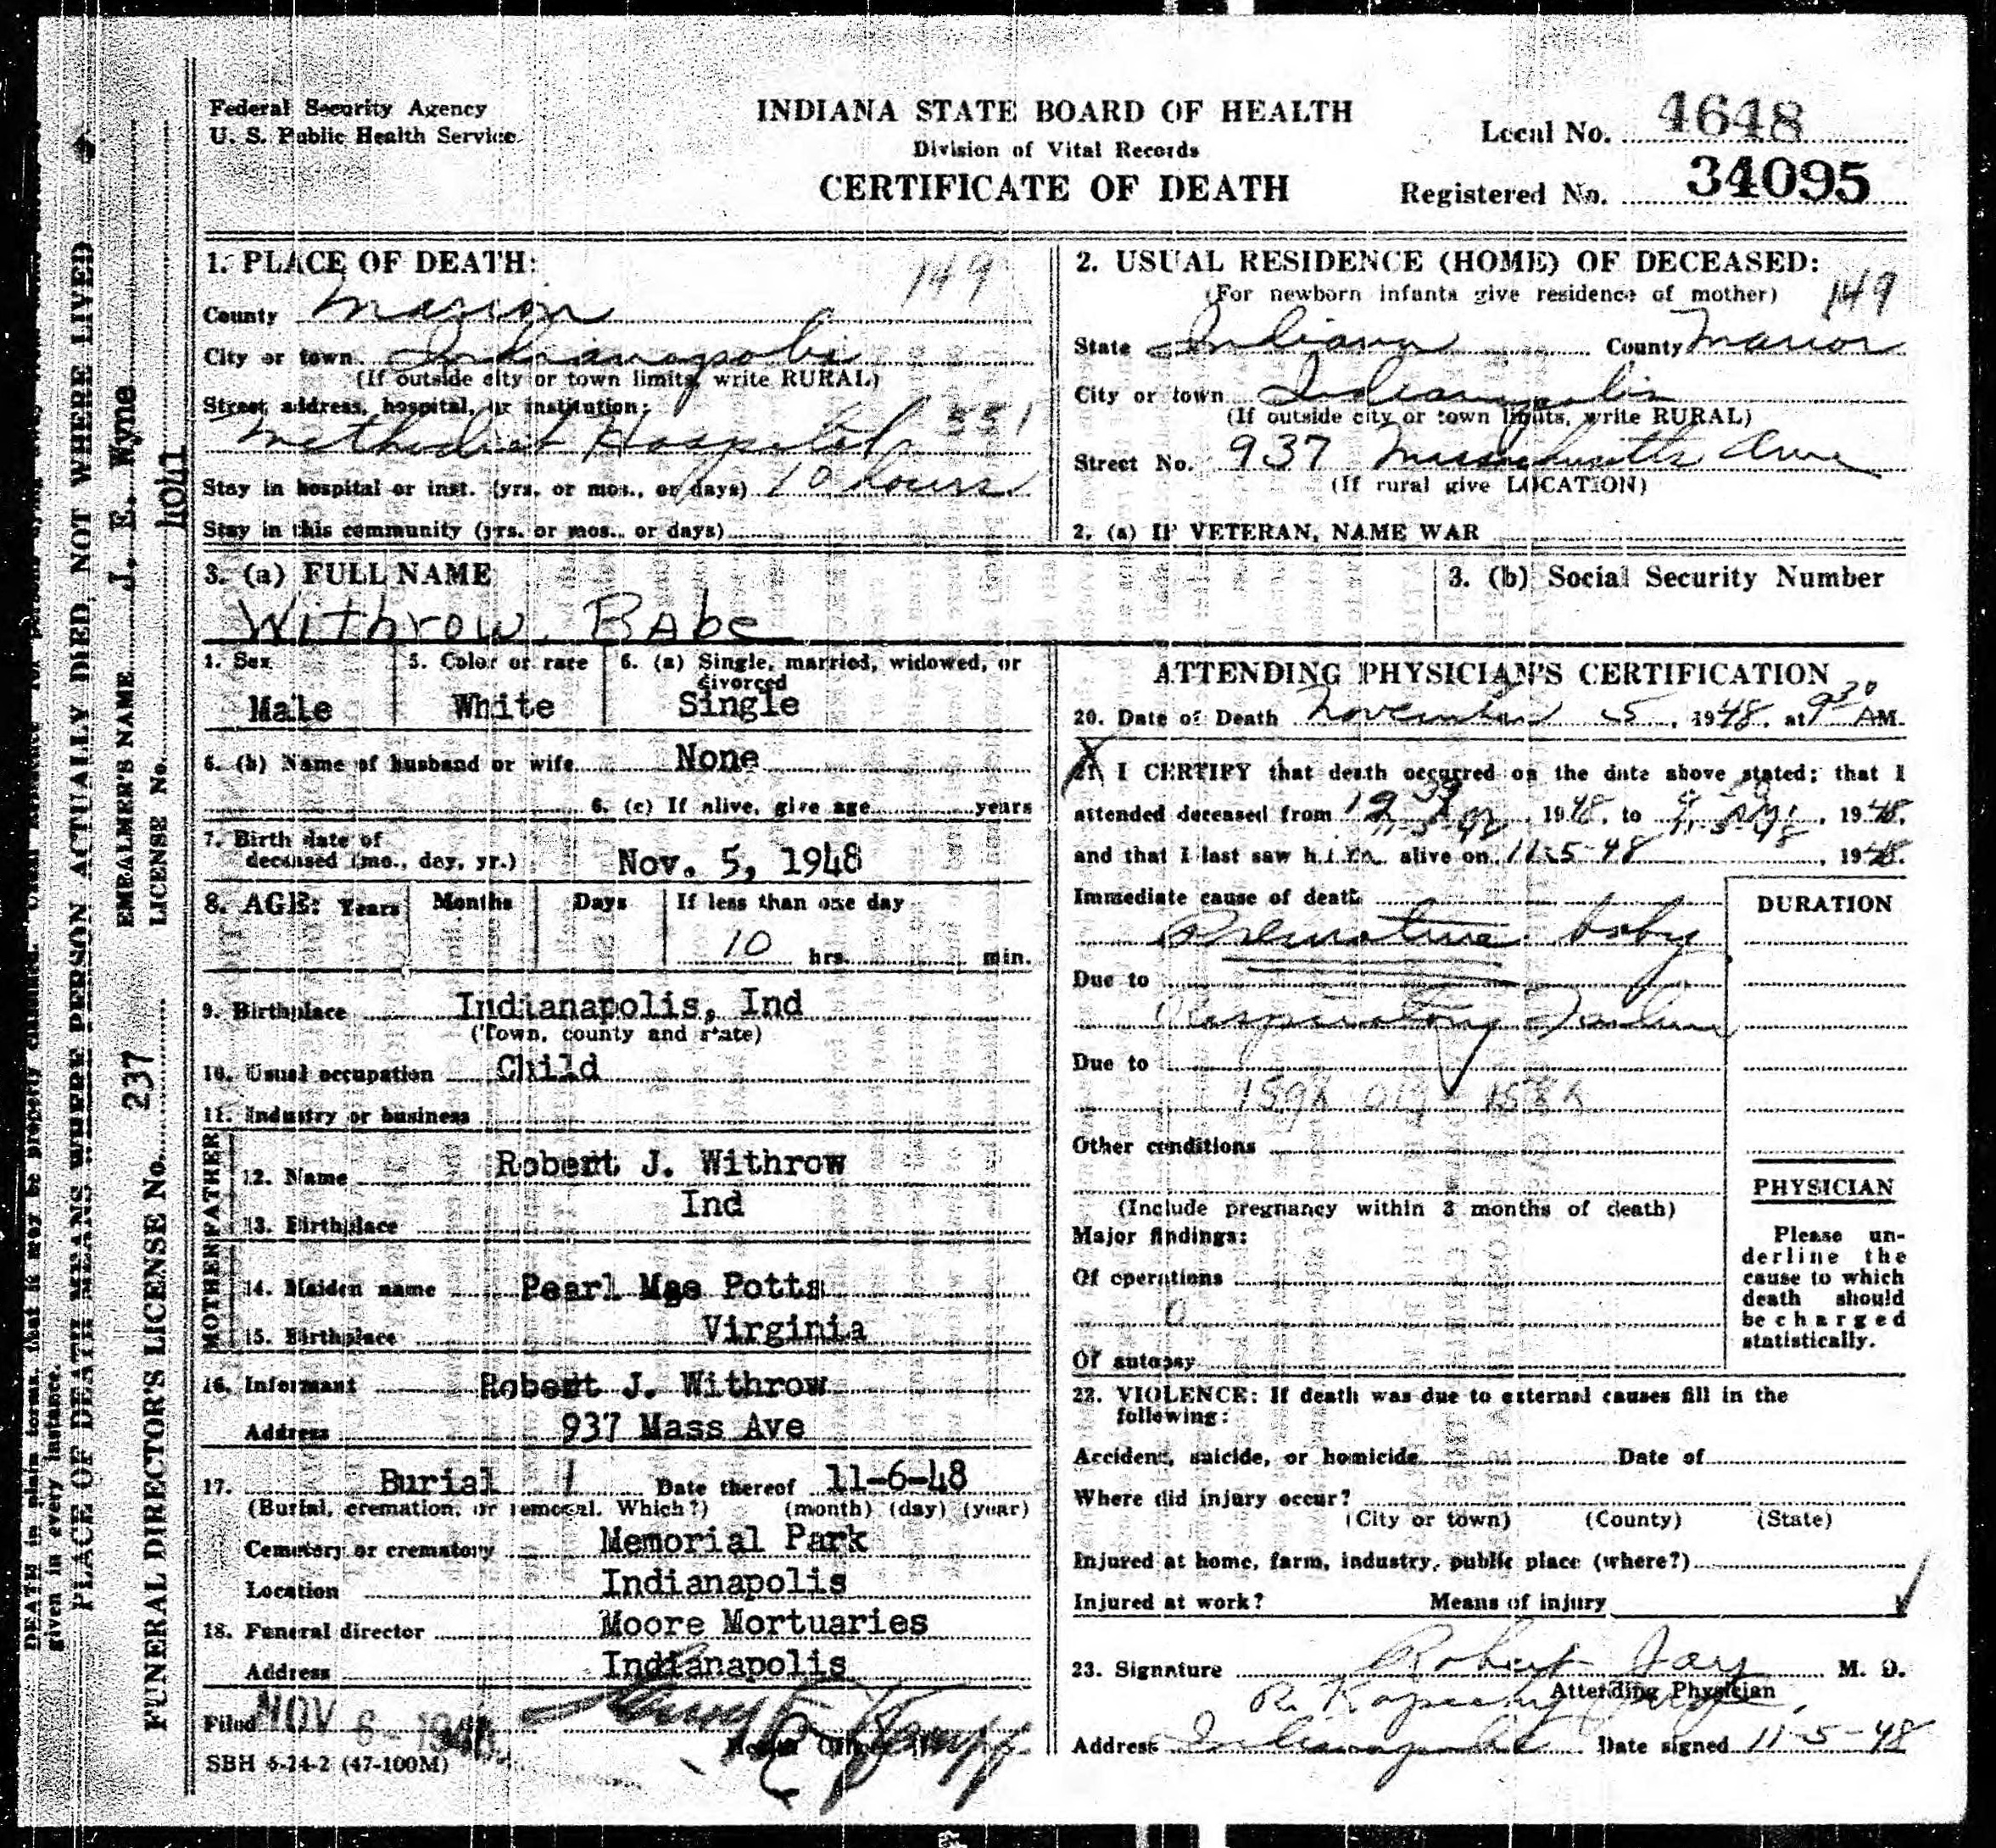 Federal Security Agency
U. S. Public Health Service
INDIANA STATE BOARD OF HEALTH
Division of Vital Records
CERTIFICATE OF DEATH
Local No. 4648
Registered No. 34095
1. PLACE OF DEATH: 149
County Marion
City or town Indianapolis
(If outside city or town limits, write RURAL)
Street address, hospital, or institution:
Methodist Hospital 551
Stay in hospital or inst. (yrs. or mos., or days) 10 hours
Stay in this community (yrs. or mos., or days)
2. USUAL RESIDENCE (HOME) OF DECEASED:
(For newborn infants give residence of mother) 149
State Indiana County Marion
City or town Indianapolis
(If outside city or town limits, write RURAL)
Street No. 937 Massachusetts Ave
(If rural give LOCATION)
2. (a) IF VETERAN, NAME WAR
3. (a) FULL NAME
Withrow, Babe
3. (b) Social Security Number
4. Sex
Male
5. Color or race
White
6. (a) Single, married, widowed, or
divorced
Single
6. (b) Name of husband or wife None
6. (c) If alive, give age years
7. Birth date of
deceased (mo., day, yr.) Nov. 5, 1948
8. AGE: Years Months Days If less than one day
10 hrs. min.
9. Birthplace Indianapolis, Ind
(Town, county and state)
10. Usual occupation Child
11. Industry or business
FATHER
12. Name Robert J. Withrow
13. Birthplace Ind
MOTHER
14. Maiden name Pearl Mae Potts
15. Birthplace Virginia
16. Informant Robert J. Withrow
Address 937 Mass Ave
17. Burial Date thereof 11-6-48
(Burial, cremation, or removal. Which?) (month) (day) (year)
Cemetery or crematory Memorial Park
Location Indianapolis
18. Funeral director Moore Mortuaries
Address Indianapolis
Filed NOV 6 - 1948
Health Officer
SBH 6-24-2 (47-100M)
ATTENDING PHYSICIAN'S CERTIFICATION
20. Date of Death November 5, 1948, at 9 30 AM.
21. I CERTIFY that death occurred on the date above stated; that I
attended deceased from 11-5-48, 1948, to 11-5-48, 1948,
and that I last saw him alive on 11-5-48, 1948.
Immediate cause of death
Premature baby
Due to
Respiratory Failure
Due to
Other conditions
(Include pregnancy within 3 months of death)
Major findings:
Of operations
0
Of autopsy
DURATION
PHYSICIAN
Please un-
derline the
cause to which
death should
be charged
statistically.
22. VIOLENCE: If death was due to external causes fill in the
following:
Accident, suicide, or homicide Date of
Where did injury occur?
(City or town) (County) (State)
Injured at home, farm, industry, public place (where?)
Injured at work? Means of injury
23. Signature Robert Jay M. D.
Attending Physician
Address Indianapolis Date signed 11-5-48
DEATH in plain terms, that it may be properly classified.
given in every instance.
PLACE OF DEATH MEANS WHERE PERSON ACTUALLY DIED, NOT WHERE LIVED
EMBALMER'S NAME J. E. Wyne
LICENSE No. 4047
FUNERAL DIRECTOR'S LICENSE No. 237